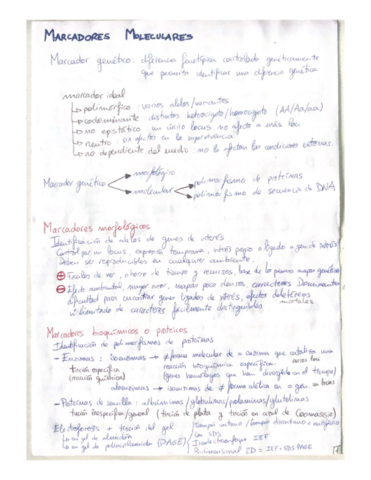 MARCADORES MOLECULARES
Marcador genético: diferencia fenotípica controlada genéticamente
que permite identificar una diferencia genética
marcador ideal
polimórfico: varios alelos/variantes
codominante: distintos heterocigoto/homocigoto (AA/Aa/aa)
no epistático: un único locus no afecta a más loci
neutro: no afectar en la supervivencia
no dependiente del medio: no le afectan las condiciones externas.
morfológico
Marcador genético
molecular
polimorfismo de proteínas
polimorfismo de secuencia de DNA
Marcadores morfológicos
Identificación de alelos de genes de interés
Control por un locus, expresión temprana, interés propio o ligado a gen de interés
Deben ser reproducibles en cualquier ambiente.
⊕ Fáciles de ver, ahorro de tiempo y recursos, base de los primeros mapas genéticos
⊖ Efecto ambiental, mayor error, mapas poco densos, caracteres Dominantes
dificultad para encontrar genes ligados de interés, efectos deletéreos
nº limitado de caracteres fácilmente distinguibles
Marcadores bioquímicos o proteicos
Identificación de polimorfismos de proteínas
- Enzimas: isoenzimas → ≠ forma molecular de = enzima que cataliza una
tinción específica reacción bioquímica específica
(reacción química) (genes homólogos que han divergido en el tiempo)
aloenzimas → isoenzimas de ≠ forma alélica en = gen
- Proteínas de semilla: albúminas/globulinas/prolaminas/glutelinas
tinción inespecífica/general (tinción de plata y tinción en azul de Coomassie)
Electroforesis + tinción del gel
en gel de almidón
en gel de poliacrilamida (PAGE)
SDS
Isoelectroenfoque IEF
Bidimensional 2D = IEF + SDS PAGE